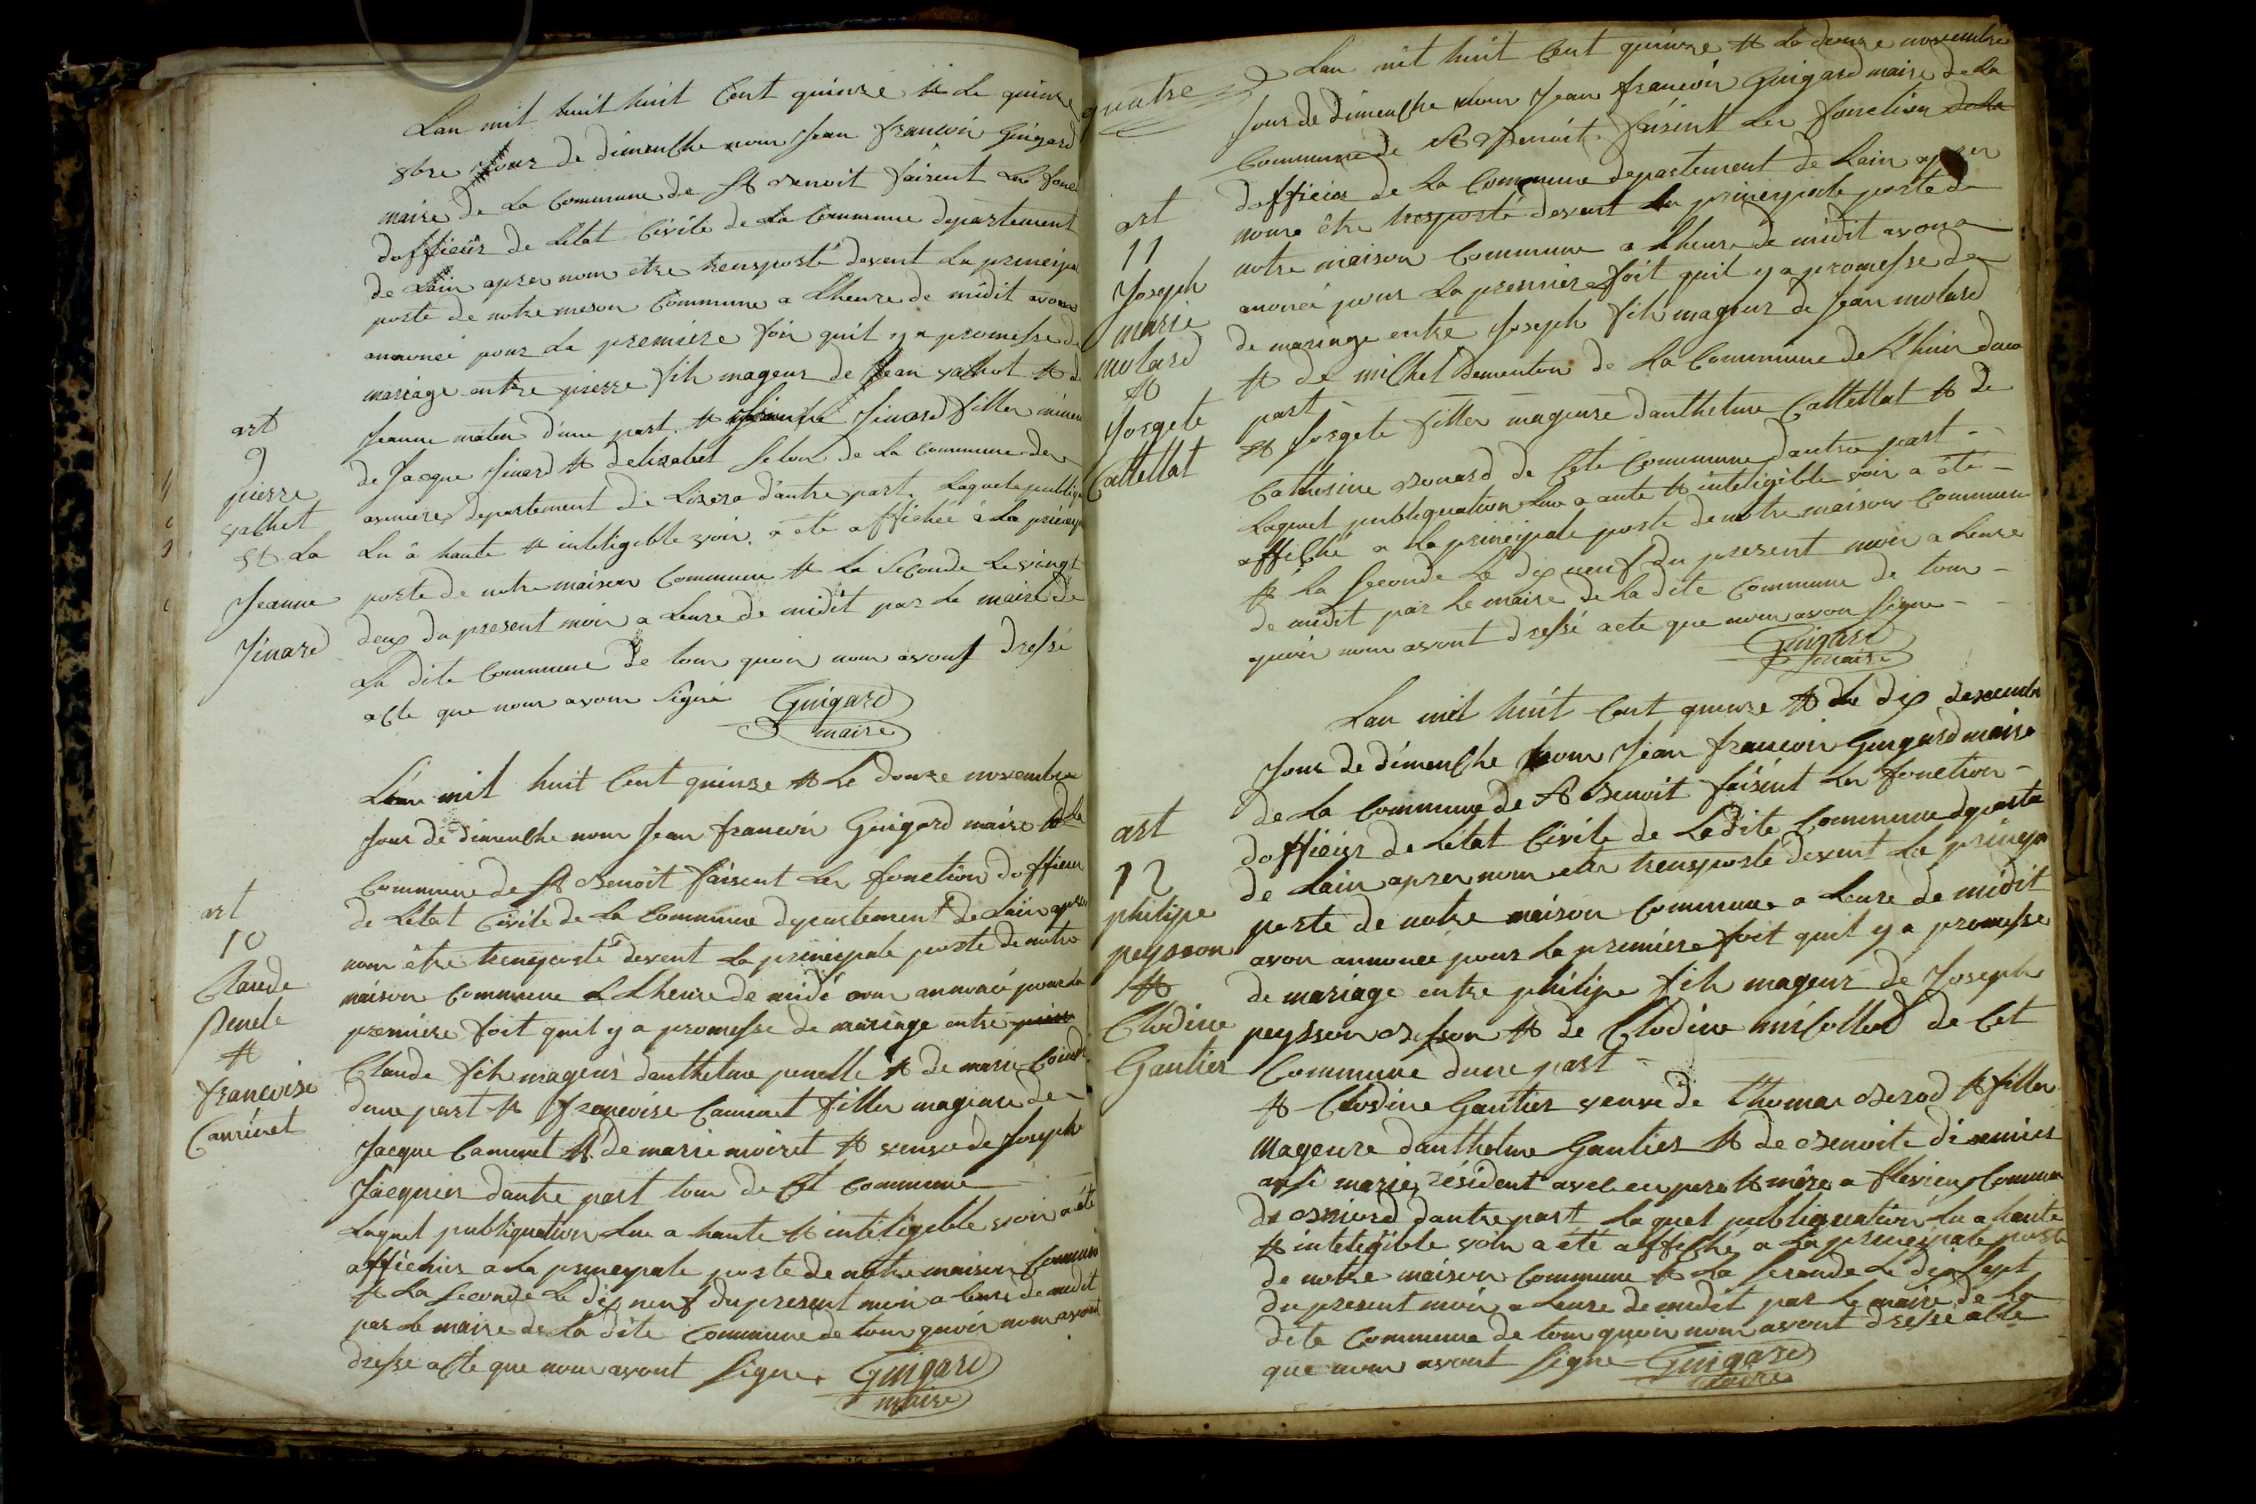 Lan mil huit huit Cent quinze et Le quinze
8bre jour de dimenche nour Jean francoir Guigard
maire de La Commune de St Benoit faisent Les fonc
dofficier de Létat Civile de La Commune departement
de Lain apres nour être transporté devent La principal
porte de notre meson Commune a Lheure de midit avons
annoncé pour La premiere foir quil y a promesse de
mariage entre pierre fils mageur de Jean valhot et de
Jeanne d'une part et Jinard filler mineur
de Jacque Jinard et delizabet de La commune de
departement de Lizera d'autre part Laquele publiq
Lu à haute et inteligible voir a été affichée à La princip
porte de notre maison Commune et La Seconde Le vingt
deux du present moir a Leure de midit par Le maire de
La dite Commune de tour quoir nour avons dressé
acte que nour avons Signé Guigard
maire
art
9
pierre
valhet
et La
Jeanne
Jinard
Lan mil huit Cent quinze et Le douze novembre
Jour de dimenche nour Jean francoir Guigard maire de La
Commune de St Benoit faisent Les fonction dofficier
de Létat Civile de La Commune departement de Lain apres
nour être transporté devent La principale porte de notre
maison Commune a Lheure de midi avons annoncé pour La
premiere foit quil y a promesse de mariage entre
Claude fils mageur danthelme penelle et de marie
dune part et francoise Canrinet filler mageure de
Jacque Canrinet et de marie moiret et veuve de Joseph
Jacquier dautre part tour de Cet Commune
Laquel publiquation Lue a haute et inteligible voir a été
affichée a La principale porte de notre maison Commune
et La Seconde Le dix neuf du present moir a Leure de midit
par Le maire de La dite Commune de tour quoir nour avont
dressé acte que nour avont Signé Guigard
maire
art
10
Claude
penele
et
francoise
Canrinet
quatre
Lan mil huit Cent quinze et Le douze novembre
Jour de dimenche nour Jean francoir Guigard maire de La
Commune de St Benoit faisint Les fonction
dofficier de La Commune departement de Lain apres
nour être trasporté devent La principale porte de
notre maison Commune a Lheure de midit avons
anoncé pour La premiere foit quil y a promesse de
de mariage entre Joseph fils mageur de Jean molard
et de michel dementon de La Commune de Lhuir dune
part
et Jorgete filler mageure danthelme Cattellat et de
Catherine Bonard de Cete Commune dautre part
Laquel publiquation Lue a aute et inteligible voir a été
affiché a La principale porte de notre maison Commune
et La Seconde Le dix neuf du present moir a Leure
de midit par Le maire de La dite Commune de tour
quoir nour avont dressé acte que nour avon Signe
Guigard
maire
art
11
Joseph
marie
molard
et
Jorgete
Cattellat
Lan mil huit Cent quinze et Le dix decembre
Jour de dimenche nour Jean francoir Guigard maire
de La Commune de St Benoit faisint Les fonction
dofficier de Létat Civile de Ledite Commune departe
de Lain apres nour etre transporté devent La princip
porte de notre maison Commune a Leure de midit
avon annoncé pour La premiére foit quil y a promesse
de mariage entre philipe fils mageur de Joseph
peysson Besson et de Clodine micolled de Cet
Commune dune part
et Clodine Gautier veuve de thomar Berod et filler
Mageure danthelme Gautier et de Benoite
marie, résident avec ces pere et mère a flevieu Commune
de dautre part Laquel publiquation Lu a haute
et inteligible voir a été affiché a La principale porte
de notre maison Commune et La Seconde Le dix Sept
du present moir a Leure de midit par Le maire de La
dite Commune de tour quoir nour avont dressé acte
que nour avont Signé Guigard
maire
art
12
philipe
peysson
et
Clodine
Gautier